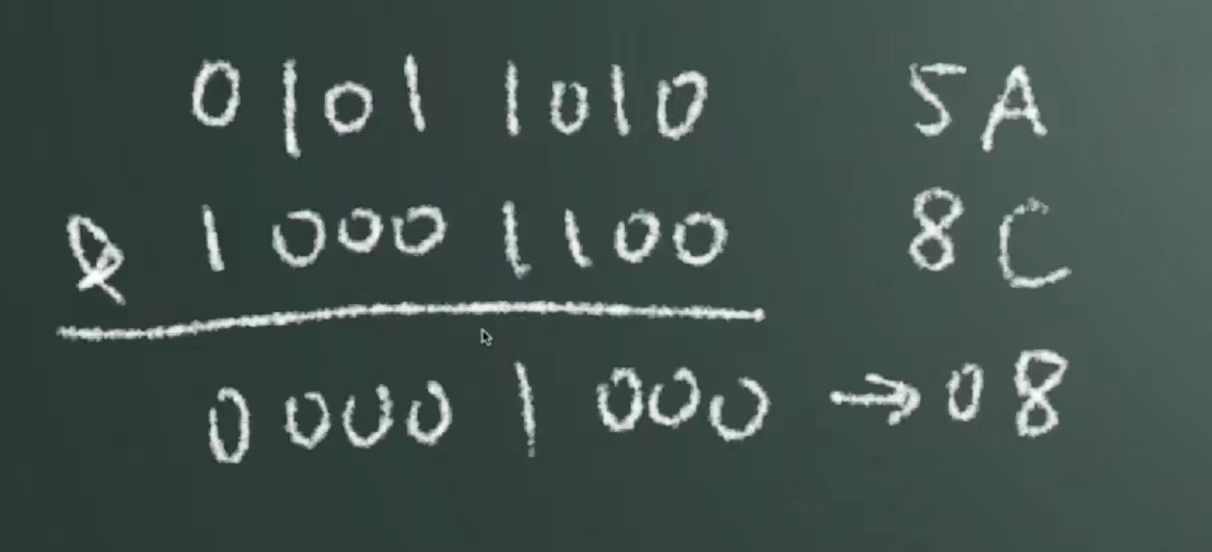 0101 1010 5A
& 1000 1100 8C
0000 1000 → 08